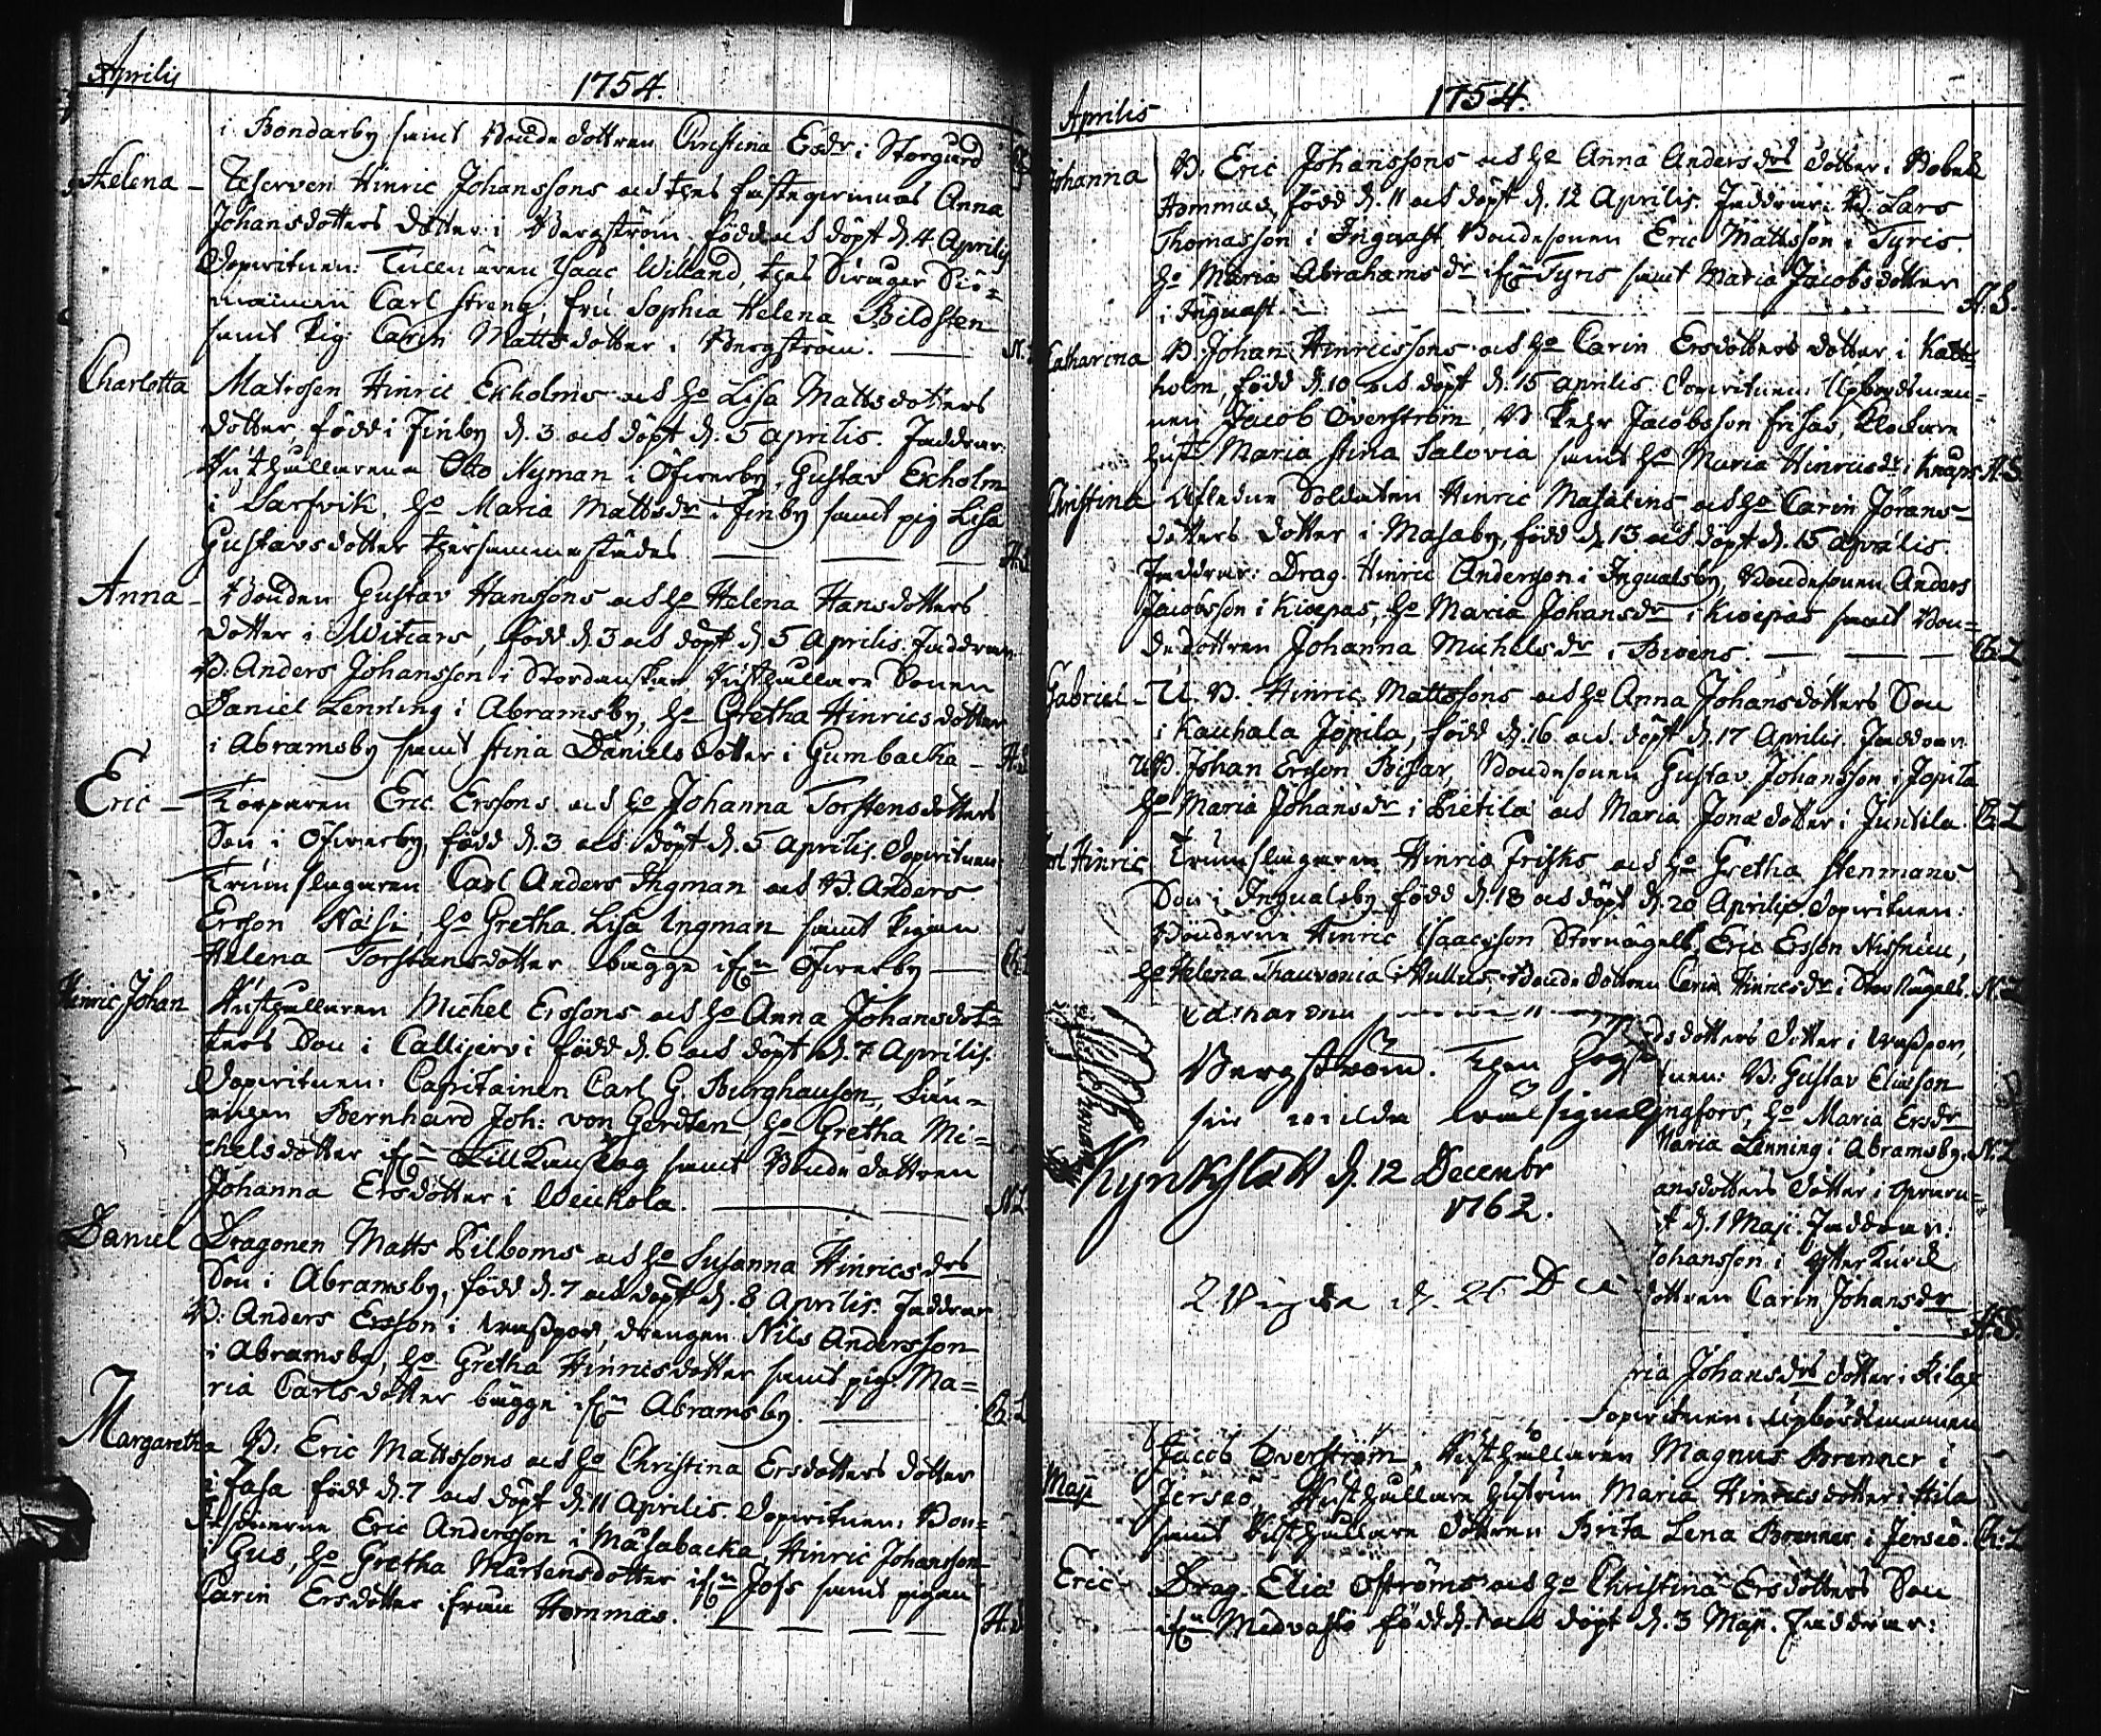 Aprilis
1754.
i Bondarby samt Bondedottren Christina Ersdr i Storgård
Helena - Reserven Hinric Johanssons och thes fästeqvinnas Anna
Johansdotters dotter i Bergström, född och döpt d. 4 Aprilis
Dopvittnen: Tullnären Isaac Willand, thes Svåger
Carl Streng, fru Sophia Helena Bildsten
samt pig. Carin Mattsdotter i Bergström.
Charlotta Matrosen Hinric Ekholms och ho Lisa Mattsdotters
dotter, född i Finby d. 3 och döpt d. 5 Aprilis. Faddrar:
Otto Nyman i Öfverby, Gustav Ekholm
i Sarfvik, ho Maria Mattsdr i Finby samt pig Lisa
Gustavsdotter thersammastädes
Anna - Bonden Gustav Hanssons och ho Helena Hansdotters
dotter i Witears, född d. 3 och döpt d. 5 Aprilis. Faddrar:
B. Anders Johansson i Stordansker, Rusthållare Sonen
Daniel Lenning i Abramsby, ho Gretha Hinricsdotter
i Abramsby samt Stina Danielsdotter i Gumbacka - H.S
Eric - Torparen Eric Erssons och ho Johanna Torstensdotters
Son i Öfverby, född d. 3 och döpt d. 5 Aprilis. Dopvittnen
Trumslagaren Carl Anders Ingman och B. Anders
Ersson Näsi, ho Gretha Lisa Ingman samt Pigan
Helena Torstensdotter bägge ifrn Öfverby
Hinric Johan Rusthållaren Michel Erssons och ho Anna Johansdot=
ters Son i Callijervi född d. 6 och döpt d. 7 Aprilis.
Dopvittnen: Capitainen Carl G. Burghausen,
Bernhard Joh: von Gerdten, ho Gretha Mi=
chelsdotter ifrn samt Bondedottren
Johanna Ersdotter i Weickola. N.L
Daniel Dragonen Matts Pilboms och ho Susanna Hinricsdrs
Son i Abramsby, född d. 7 och döpt d. 8 Aprilis. Faddrar
B: Anders Ersson i, drengen Nils Andersson
i Abramsby, ho Gretha Hinricsdotter samt pig. Ma=
ria Carlsdotter bägge ifrn Abramsby.
Margaretha B: Eric Mattssons och ho Christina Ersdotters dotter
i Fasa född d. 7 och döpt d. 11 Aprilis. Dopvittnen: Bon=
desönerne Eric Andersson i Masabacka, Hinric Johansson
i Gus, ho Gretha Mårtensdotter ifrn Jofs samt pigan
Carin Ersdotter ifrån Hommas.
Aprilis
1754.
Johanna B. Eric Johanssons och ho Anna Andersdrs dotter i Bobäck
Hommas, född d. 11 och döpt d. 12 Aprilis. Faddrar: B. Lars
Thomasson i Ingvast Bondesonen Eric Mattsson i Tyris
ho Maria Abrahamsdr ifrn Tyris samt Maria Jacobsdotter
i Ingvast. H.S.
Catharina B. Johan Hinricssons och ho Carin Ersdotters dotter i Katt=
holm, född d. 10 och döpt d. 15 aprilis. Dopvittnen Upbördsman=
nen Jacob Överström, B Pehr Jacobsson Frisas, Klockare
hust. Maria Stina Salovia samt ho Maria Hinricsdr i Knaps H.S
Christina Afledne Soldaten Hinric Masalins och ho Carin Jörans-
dotters dotter i Masaby, född d. 13 och döpt d. 15 Aprilis.
Faddrar: Drag. Hinric Andersson i Ingvalsby, Bondesonen Anders
Jacobsson i Kivepas, ho Maria Johansdr i Kivepas samt Bon=
dedottren Johanna Michelsdr i Bivens.
Gabriel - U. B. Hinric Mattssons och ho Anna Johansdotters Son
i Kauhala Jopila, född d. 16 och döpt d. 17 Aprilis. Faddrar
U.B. Johan Ersson Bisar, Bondesonen Gustav Johansson i Jopila
ho Maria Johansdr i Pietilä och Maria Jonædotter i Juntila.
Hinric Trumslagaren Hinric Frisks och ho Gretha Stenmans
Son i Ingvalsby född d. 18 och döpt d. 20 Aprilis. Dopvittnen:
Bönderne Hinric Isaacsson Stornägels, Eric Ersson Nissnieu,
ho Helena Thauvonia i Hullus, Bondedottren Carin Hinricsdr i Stornägels. N.L
dsdotters dotter i
Bergström. Then Högste
tnen: B: Gustav Eliasson
give milda wälsignelse
ingfors, ho Maria Ersdr
Maria Lenning i Abramsby. N.L
Kyrkslätt d. 12 Decembr
1762.
ansdotters dotter i
t d. 1 Maji. Faddrar:
Johansson i
2 Vigda d. 26 Dec
dottren Carin Johansdr
H.S.
ria Johansdrs dotter i
Dopvittnen: Upbördsmannen
Jacob Överström, Rusthållaren Magnus Brenner i
Maji Jerseö, Rusthållare hustrun Maria Hinricsdotter i Hila
samt Rusthållare dottren Brita Lena Brenner i Jerseö.
Eric - Drag. Elia Öströms och ho Christina Ersdotters Son
ifrn Medvastö född d. 1 och döpt d. 3 Maji. Faddrar: